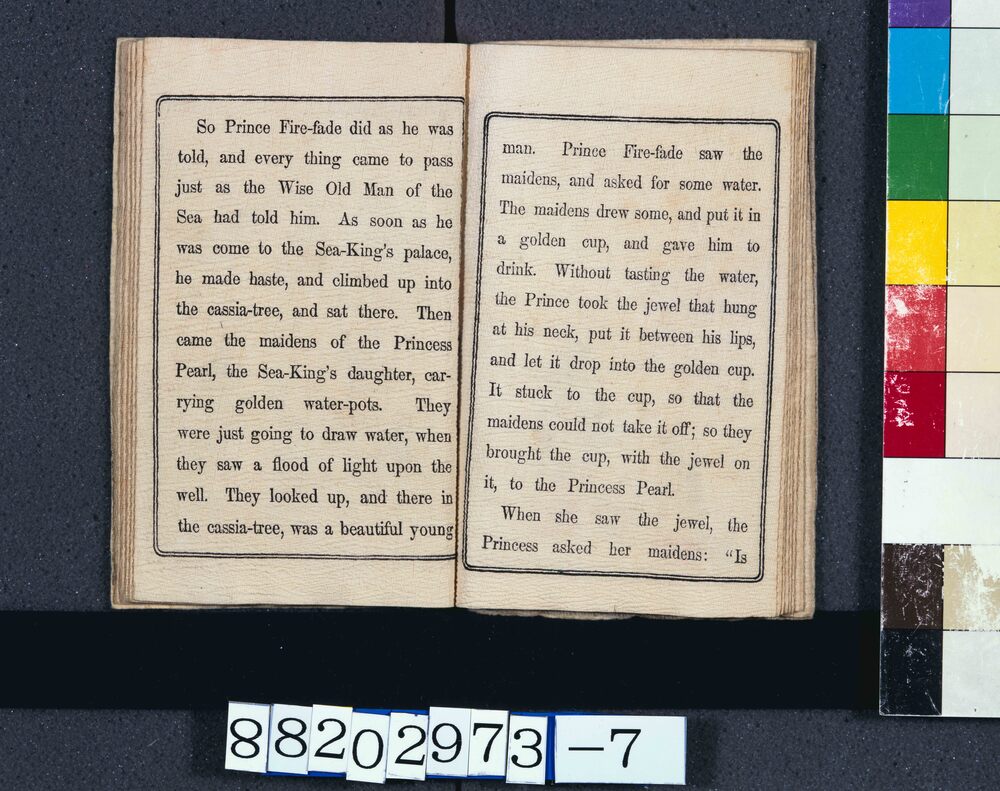 So Prince Fire-fade did as he was
told, and every thing came to pass
just as the Wise Old Man of the
Sea had told him. As soon as he
was come to the Sea-King's palace,
he made haste, and climbed up into
the cassia-tree, and sat there. Then
came the maidens of the Princess
Pearl, the Sea-King's daughter, car-
rying golden water-pots. They
were just going to draw water, when
they saw a flood of light upon the
well. They looked up, and there in
the cassia-tree, was a beautiful young
man. Prince Fire-fade saw the
maidens, and asked for some water.
The maidens drew some, and put it in
a golden cup, and gave him to
drink. Without tasting the water,
the Prince took the jewel that hung
at his neck, put it between his lips,
and let it drop into the golden cup.
It stuck to the cup, so that the
maidens could not take it off; so they
brought the cup, with the jewel on
it, to the Princess Pearl.
When she saw the jewel, the
Princess asked her maidens: "Is
88202973-7